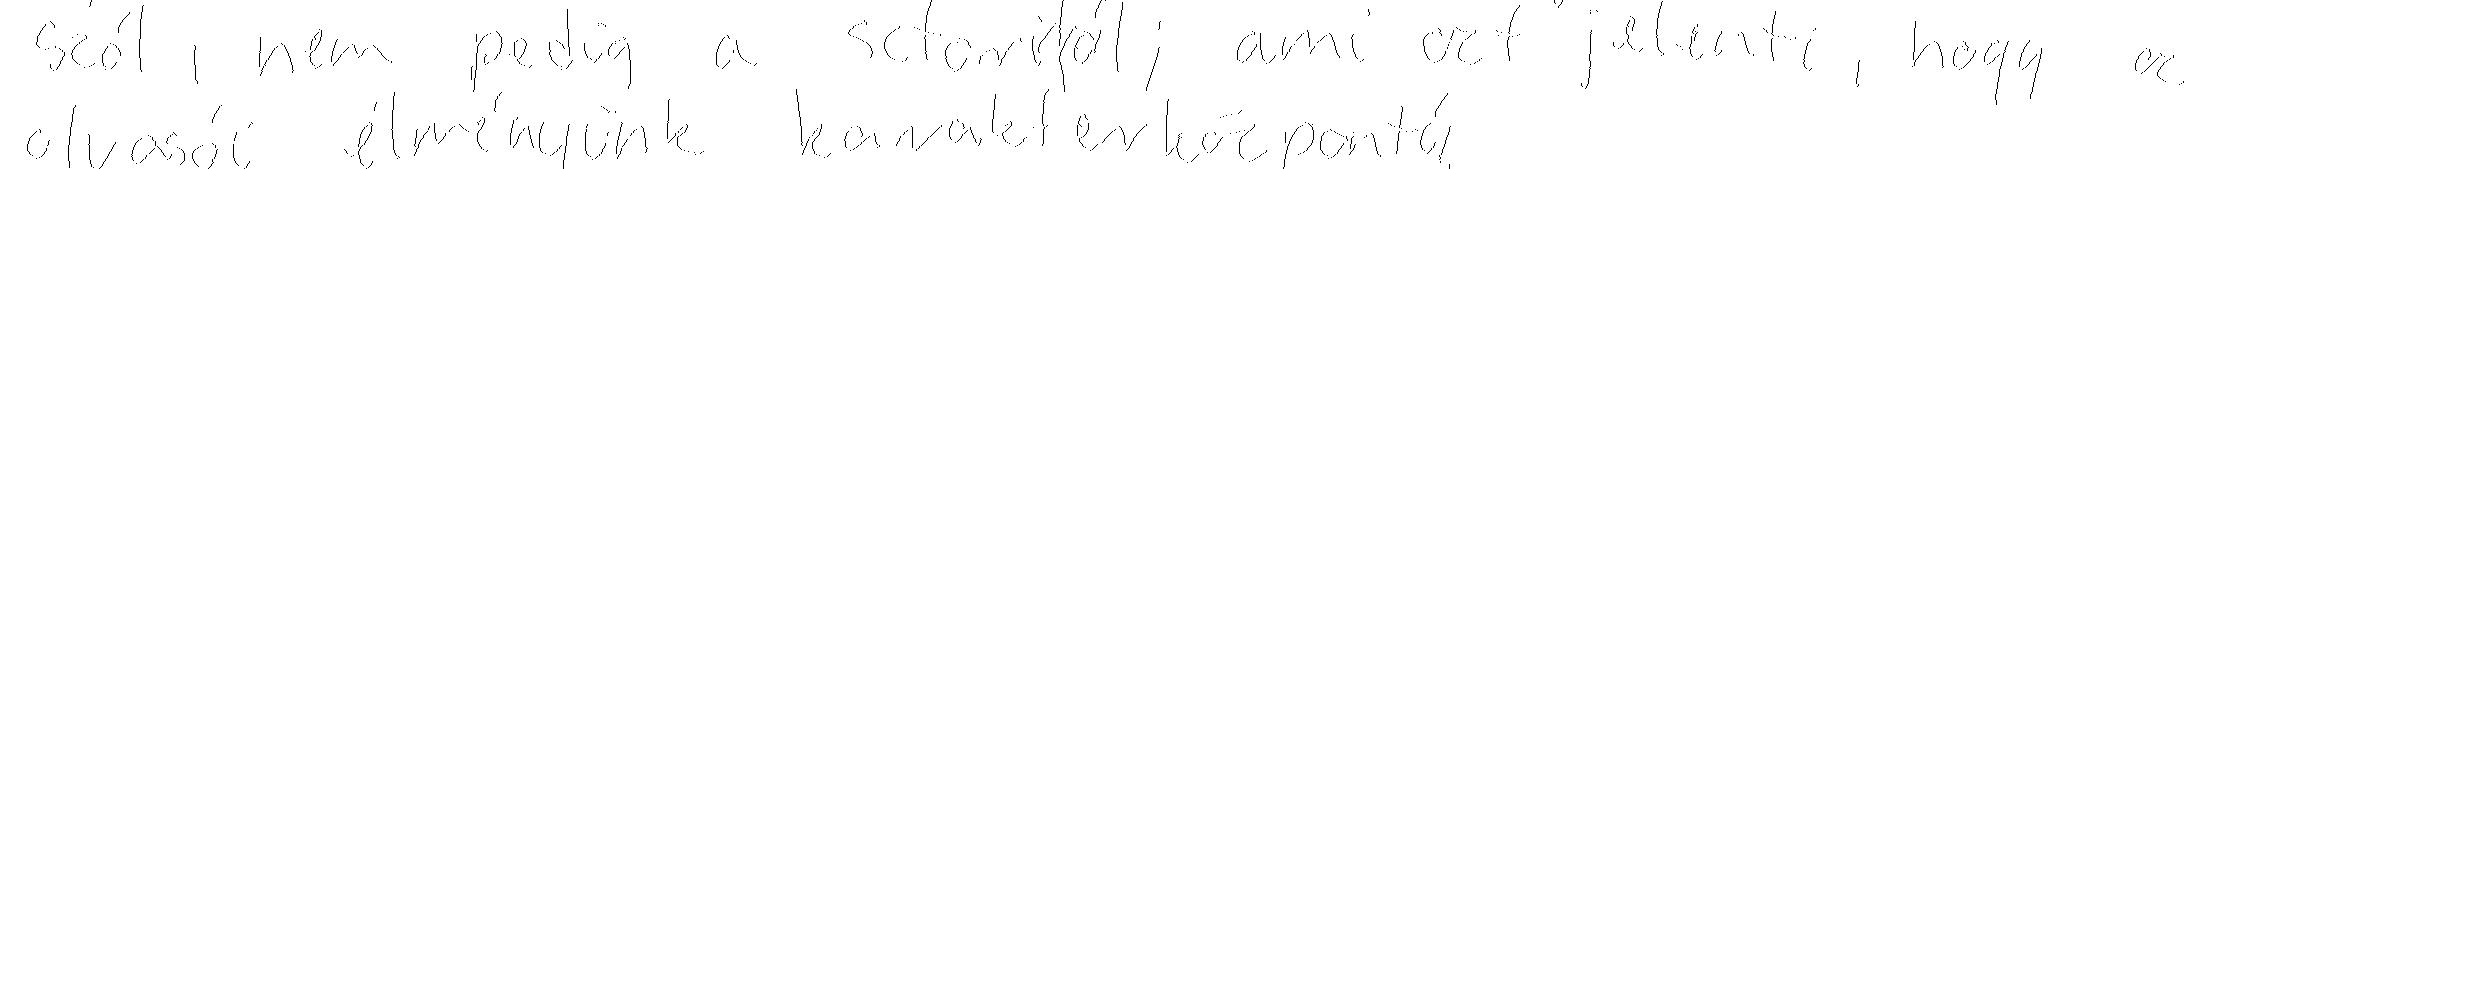 szól, nem pedig a sctoriról, ami azt jelenti, hogy az
olvasói élményünk karakterközpontú.